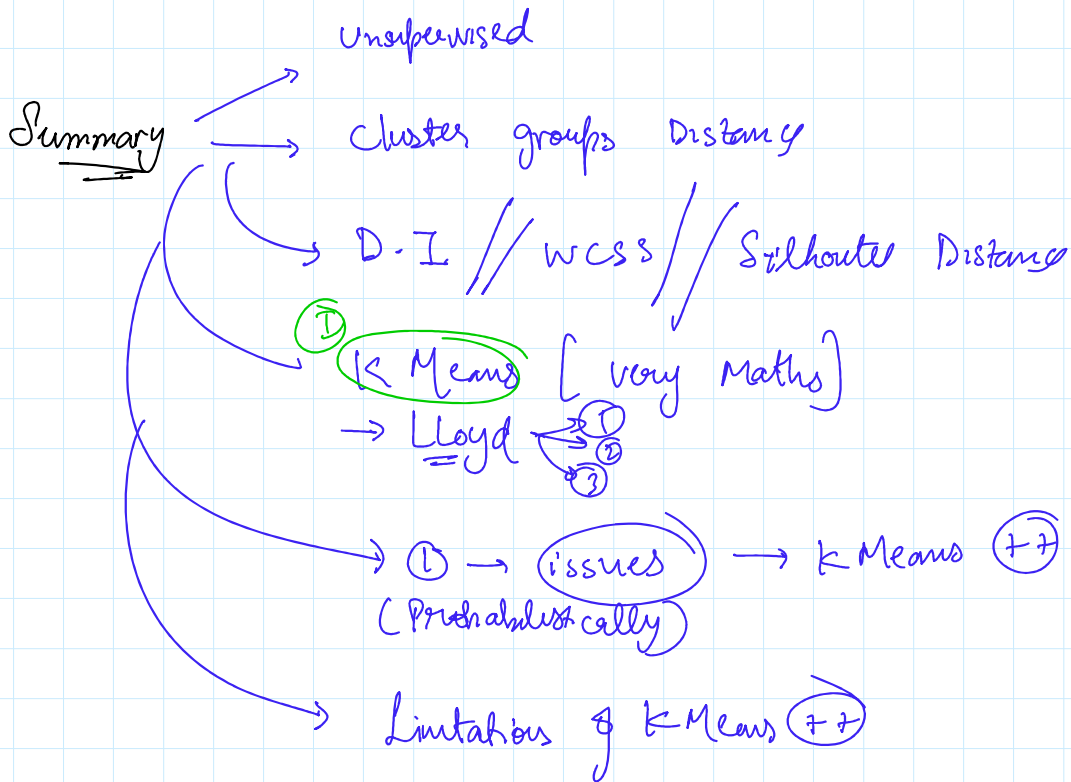 Unsupervised
Summary
Cluster groups Distance
D.I // WCSS // Silhoute Distance
①
K Means [very Maths]
→ LLoyd ① ② ③
① → issues → K Means ++
(Probabalistically)
Limtations of K Means ++